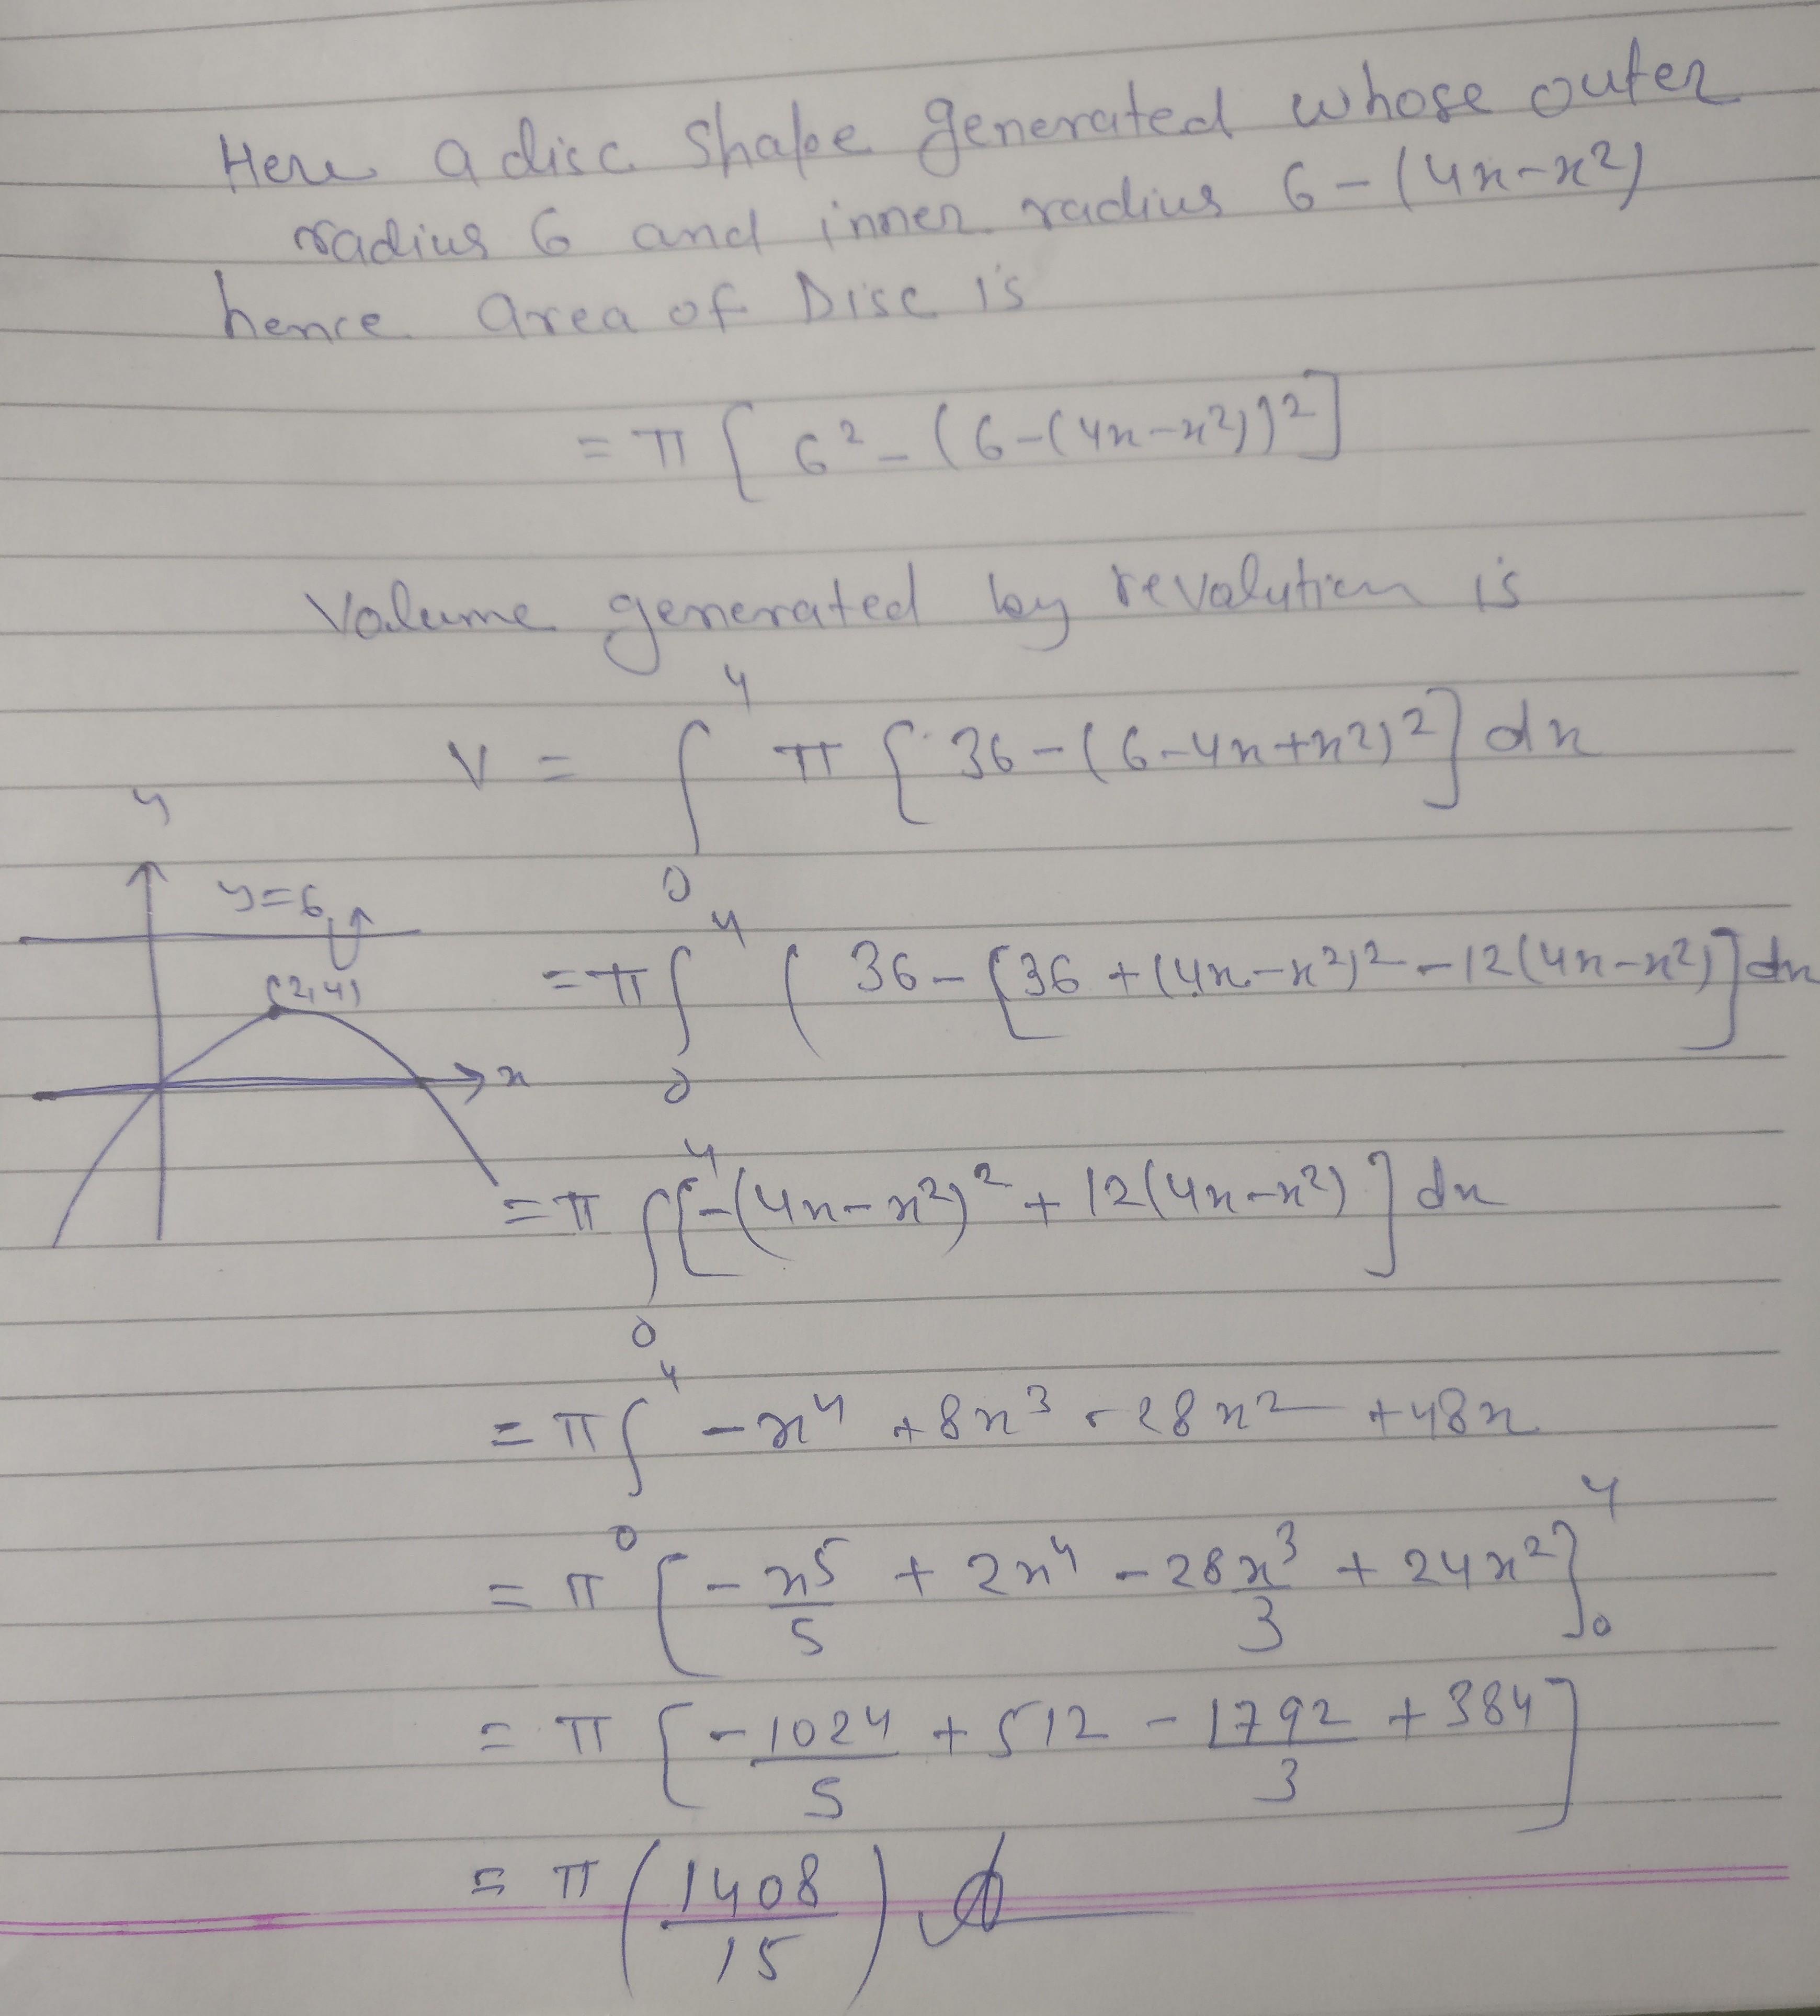 Here a disc shape generated whose outer
radius 6 and inner radius 6-(4x-x²)
hence area of Disc is
= π [ 6² - (6-(4x-x²))² ]
Volume generated by revolution is
V = ∫₀⁴ π [ 36 - (6-4x+x²)² ] dx
y
y=6
(2,4)
x
= π ∫₀⁴ ( 36 - [36 + (4x-x²)² - 12(4x-x²)] dx
= π ∫₀⁴ [ -(4x-x²)² + 12(4x-x²) ] dx
= π ∫₀⁴ -x⁴ + 8x³ - 28x² + 48x
= π [ -x⁵/5 + 2x⁴ - 28x³/3 + 24x² ]₀⁴
= π [ -1024/5 + 512 - 1792/3 + 384 ]
= π ( 1408/15 )